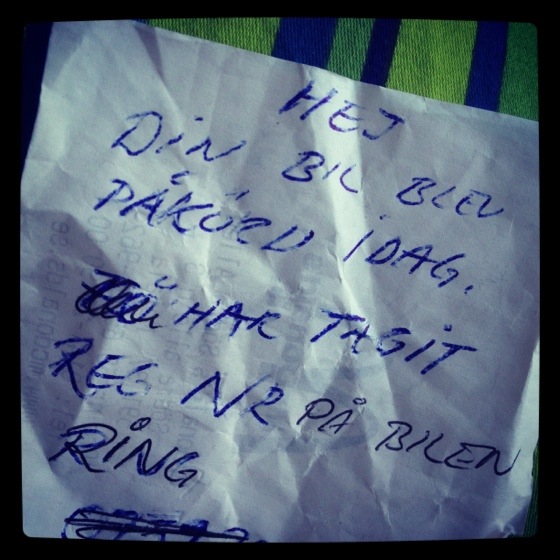 HEJ
DIN BIL BLEV
PÅKÖRD IDAG.
HAR TAGIT
REG NR PÅ BILEN
RING